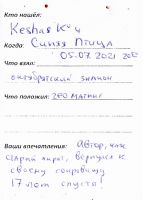 Кто нашёл:
Keshas К° и
Синяя Птица
Когда:
05.07.2021
Что взял:
октябрятский значок
Что положил: гео магнит
Ваши впечатления: Автор, как
старый пират, вернулся к
своему сокровищу
17 лет спустя!